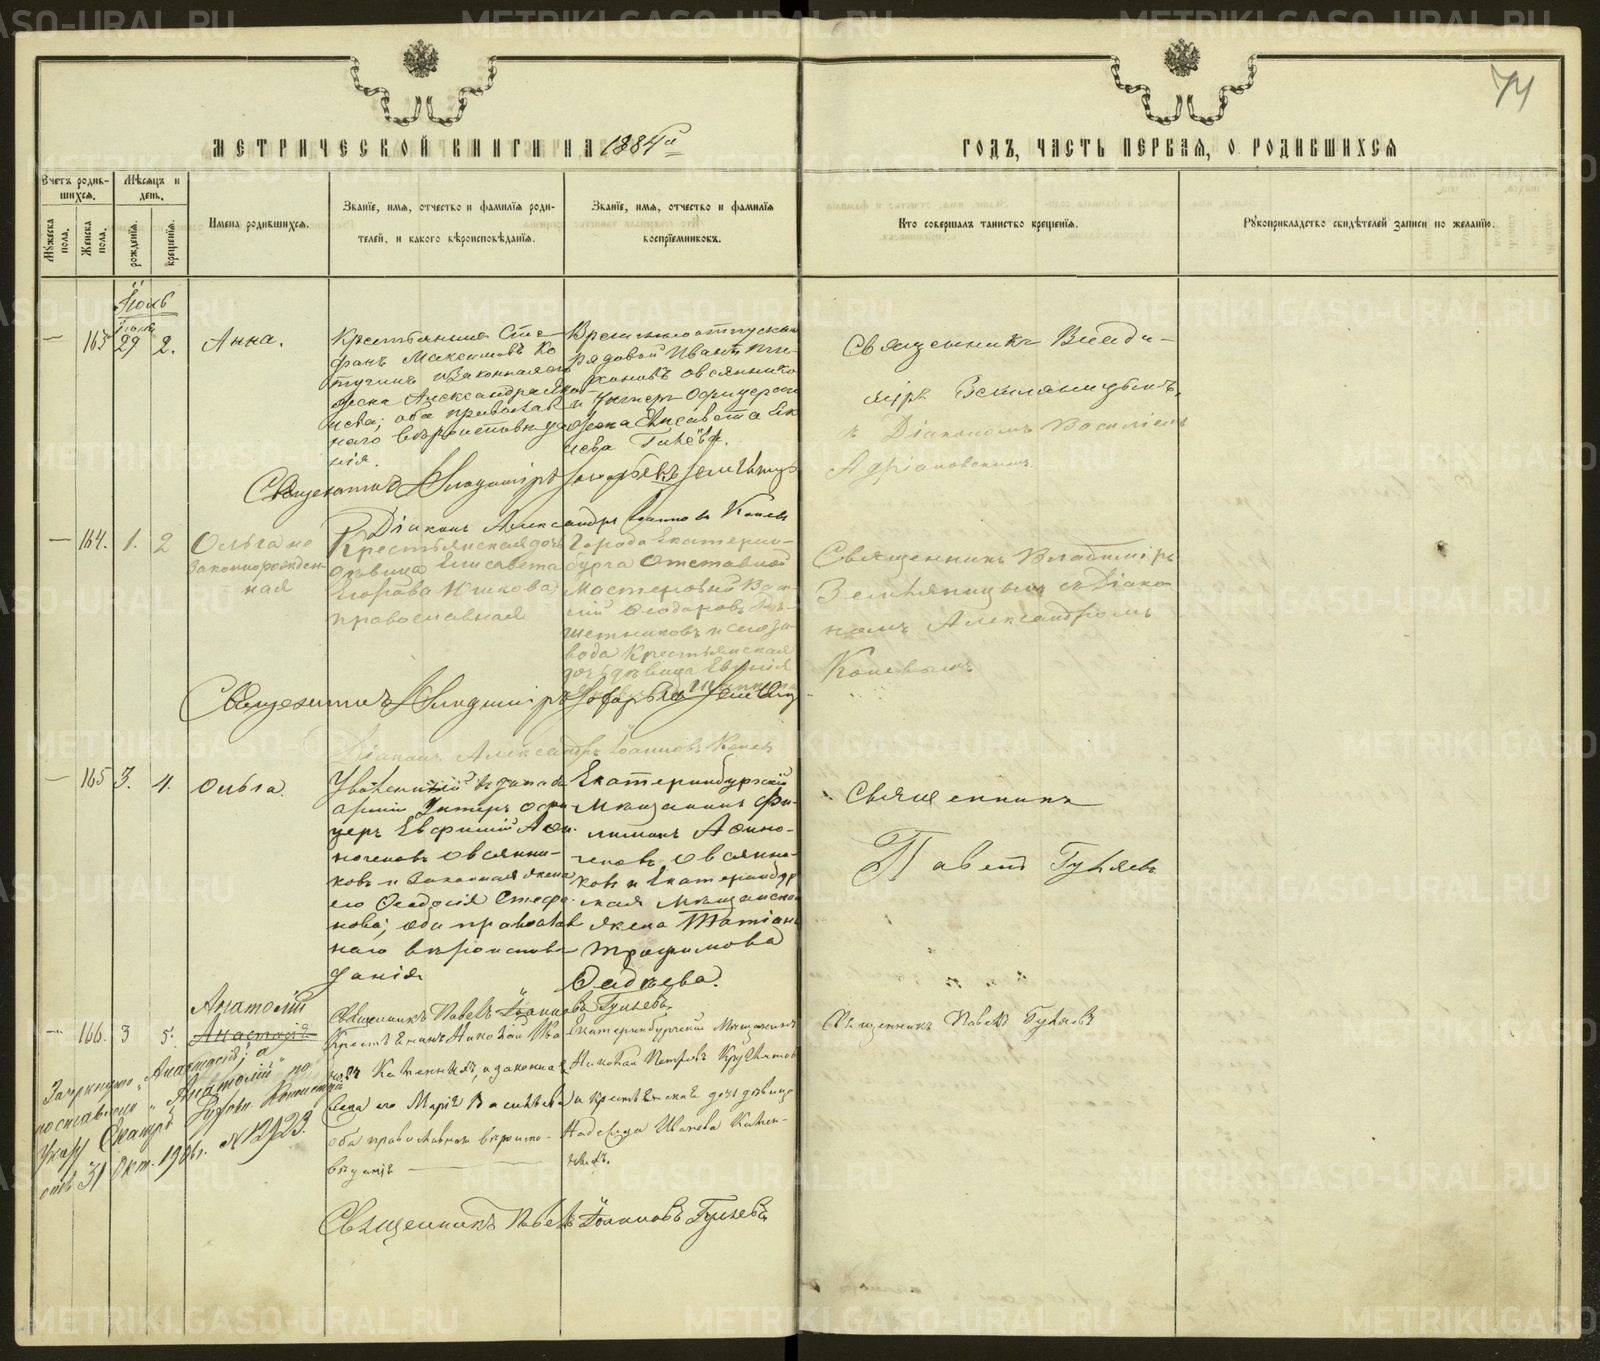 74
МЕТРИЧЕСКОЙ КНИГИ НА 1884й ГОДЪ, ЧАСТЬ ПЕРВАЯ, О РОДИВШИХСЯ
Счетъ родив-
шихся.
Мужеска пола.
Женска пола.
Мѣсяцъ и
день.
рожденія.
крещенія.
Имена родившихся.
Званіе, имя, отчество и фамилія роди-
телей, и какого вѣроисповѣданія.
Званіе, имя, отчество и фамилія
воспріемниковъ.
Кто совершалъ таинство крещенія.
Рукоприкладство свидѣтелей записи по желанію.
Іюль
Іюня
163 29 2. Анна.
Крестьянинъ Сте-
фанъ Максимовъ Ко
тугинъ и законная его
жена Александра
оба православ
наго вѣроисповѣда
нія.
Временноотпускной
рядовой Иванъ
Овсяннико
и Унтеръ Офицерская
жена Елисавета
Священникъ Влади-
міръ Земляницынъ,
съ Діакономъ Василіемъ
Адріановскимъ.
Священникъ Владиміръ Захарьевъ Земляницынъ
Діаконъ Александръ Іоанновъ Коневъ
164. 1. 2 Ольга не
законнорожден
ная
Крестьянская дочь
дѣвица Елисавета
Егорова Юшкова
православная
Города Екатерин-
бурга Отставной
Мастеровой Васи
лій Ѳеодоровъ
шетниковъ и
вода Крестьянская
дочь дѣвица Евгенія
Священникъ Владиміръ
Земляницынъ съ Діако
номъ Александромъ
Коневымъ
Священникъ Владиміръ Захарьевъ Земляницынъ
Діаконъ Александръ Іоанновъ Коневъ
165 3. 4. Ольга.
Уволенный въ запасъ
арміи Унтеръ офи
церъ Евфимій Афи
ногеновъ Овсянни-
ковъ и законная жена
его Ѳеодосія Стефа
нова; оба православ
наго вѣроисповѣ
данія
Екатеринбургскій
Мѣщанинъ Фи-
липпъ Афино-
геновъ Овсянни-
ковъ и Екатеринбур
ская Мѣщанская
жена Татіана
Трофимова
Священникъ
Павелъ Гуляевъ
Священникъ Павелъ Іоанновъ Гуляевъ
Анатолій
166. 3 5. Анастасія
Крестьянинъ Николай Ива
новъ Каменныхъ, и законная
жена его Марія Васильева
оба православнаго вѣроиспо-
вѣданія
Екатеринбургскій Мѣщанинъ
Николай Петровъ
и крестьянская дочь дѣвица
Надежда Иванова Камен-
ныхъ.
Священникъ Павелъ Гуляевъ
Зачеркнуто „Анастасія“, а
поставлено „Анатолій“ по
указу Екатер. Духовн. Консисторіи
отъ 31 Окт. 1906г. № 12923.
Священникъ Павелъ Іоанновъ Гуляевъ
METRIKI.GASO-URAL.RU